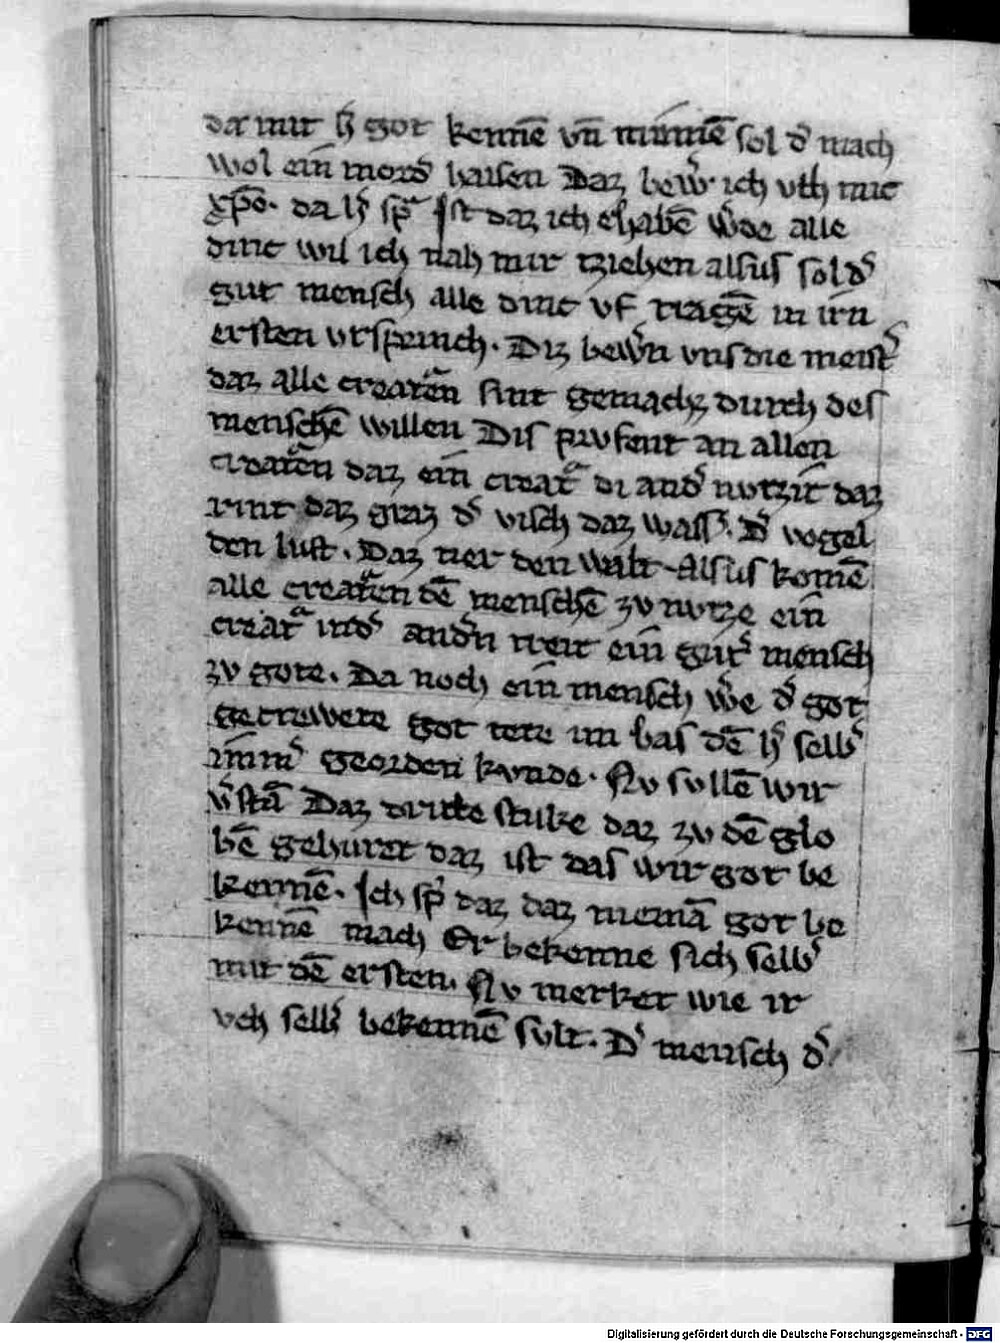 da mit h͛ got kennē vn̄ minnē sol d͛ mach
wol ein mord͛ haisen Daz bew͛ ich vch mit
xp̄o. da h͛ spͣ Ist daz ich erhabē w͛de alle
dinc wil ich nah mir tziehen alsus sol d͛
gut mensch alle dinc vf tragē in irn
ersten vrsprinch. Diz bew͛n vns die meist͛
daz alle creatͣen sint gemachz durch des
menschē willen Dis prvfent an allen
creatͣen daz ein creatͣ di and͛ nvtzit daz
rint daz graz d͛ visch daz wass͛. D͛ vogel
den luft. Daz tier den walt Alsus komē
alle creatͣen dē menschē zv nvtze ein
creatͣ in d͛ and͛n treit ein gut͛ mensch
zv gote. Da noch ein mensch w͛e d͛ got
getrwete got tete im bas dē h͛ selb͛
imm͛ georden kvnde. Nv svllē wir
v͛stā Daz dritte stuke daz zv dē glo
bē gehuret daz ist das wir got be
kennē. Ich sp͛ daz daz niemā got be
kennē mach Er bekenne sich selb͛
mit dē ersten. Nv merket wie ir
vch selb͛ bekennē svlt. D͛ mensch d͛
Digitalisierung gefördert durch die Deutsche Forschungsgemeinschaft - DFG